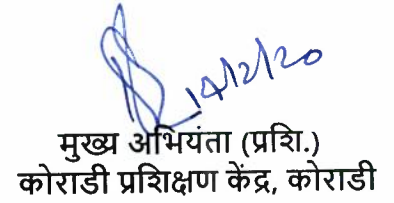 14/2/20
मुख्य अभियंता (प्रशि.)
कोराडी प्रशिक्षण केंद्र, कोराडी